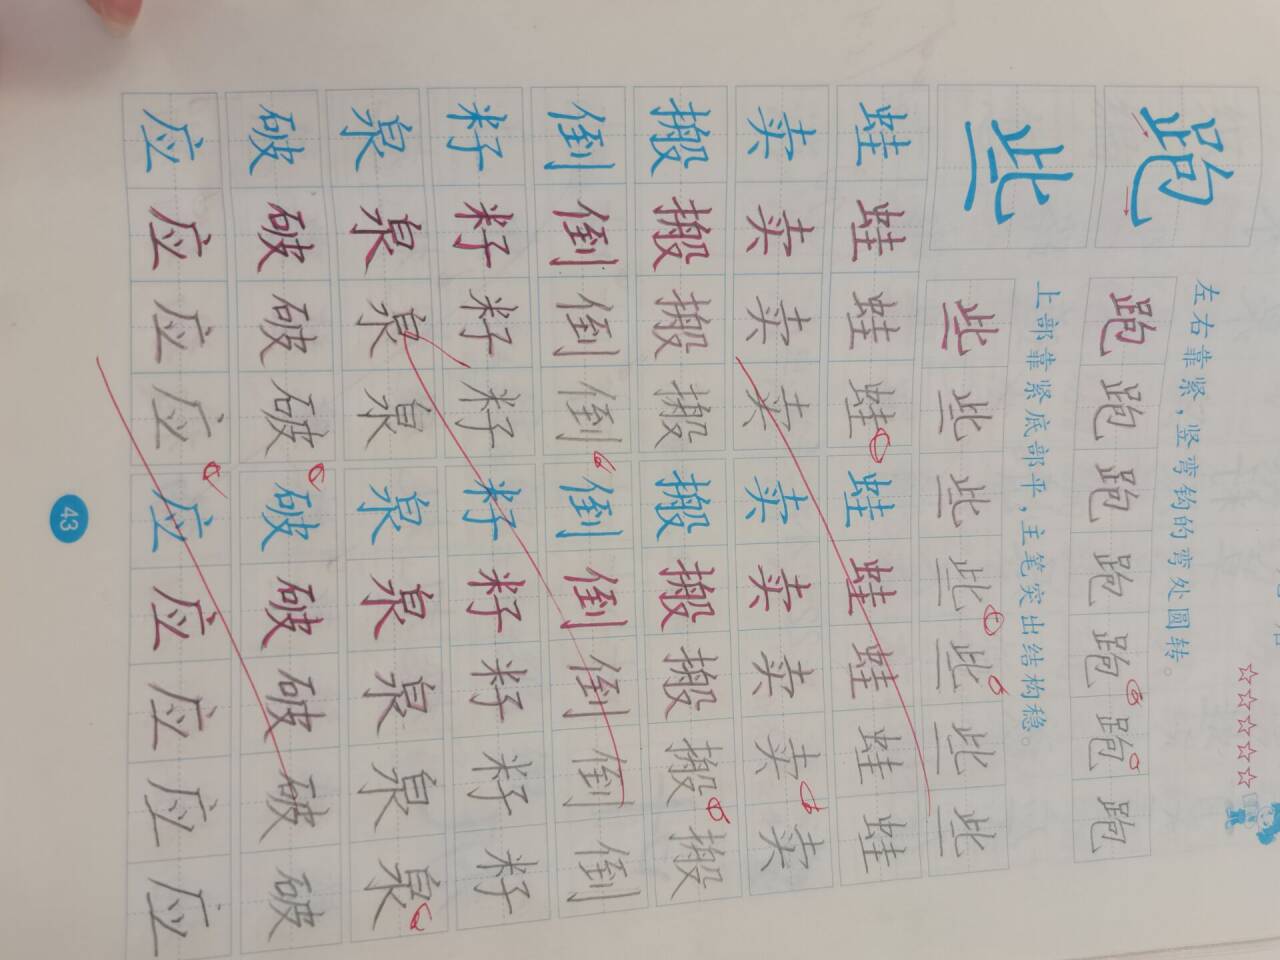 跑
左右靠紧，竖弯钩的弯处圆转。
跑跑跑跑跑跑跑
些
上部靠紧底部平，主笔突出结构稳。
些些些些些些些
蛙蛙蛙蛙蛙蛙蛙蛙蛙
卖卖卖卖卖卖卖卖卖
搬搬搬搬搬搬搬搬搬
倒倒倒倒倒倒倒倒倒
籽籽籽籽籽籽籽籽籽
泉泉泉泉泉泉泉泉泉
破破破破破破破破破
应应应应应应应应应
43